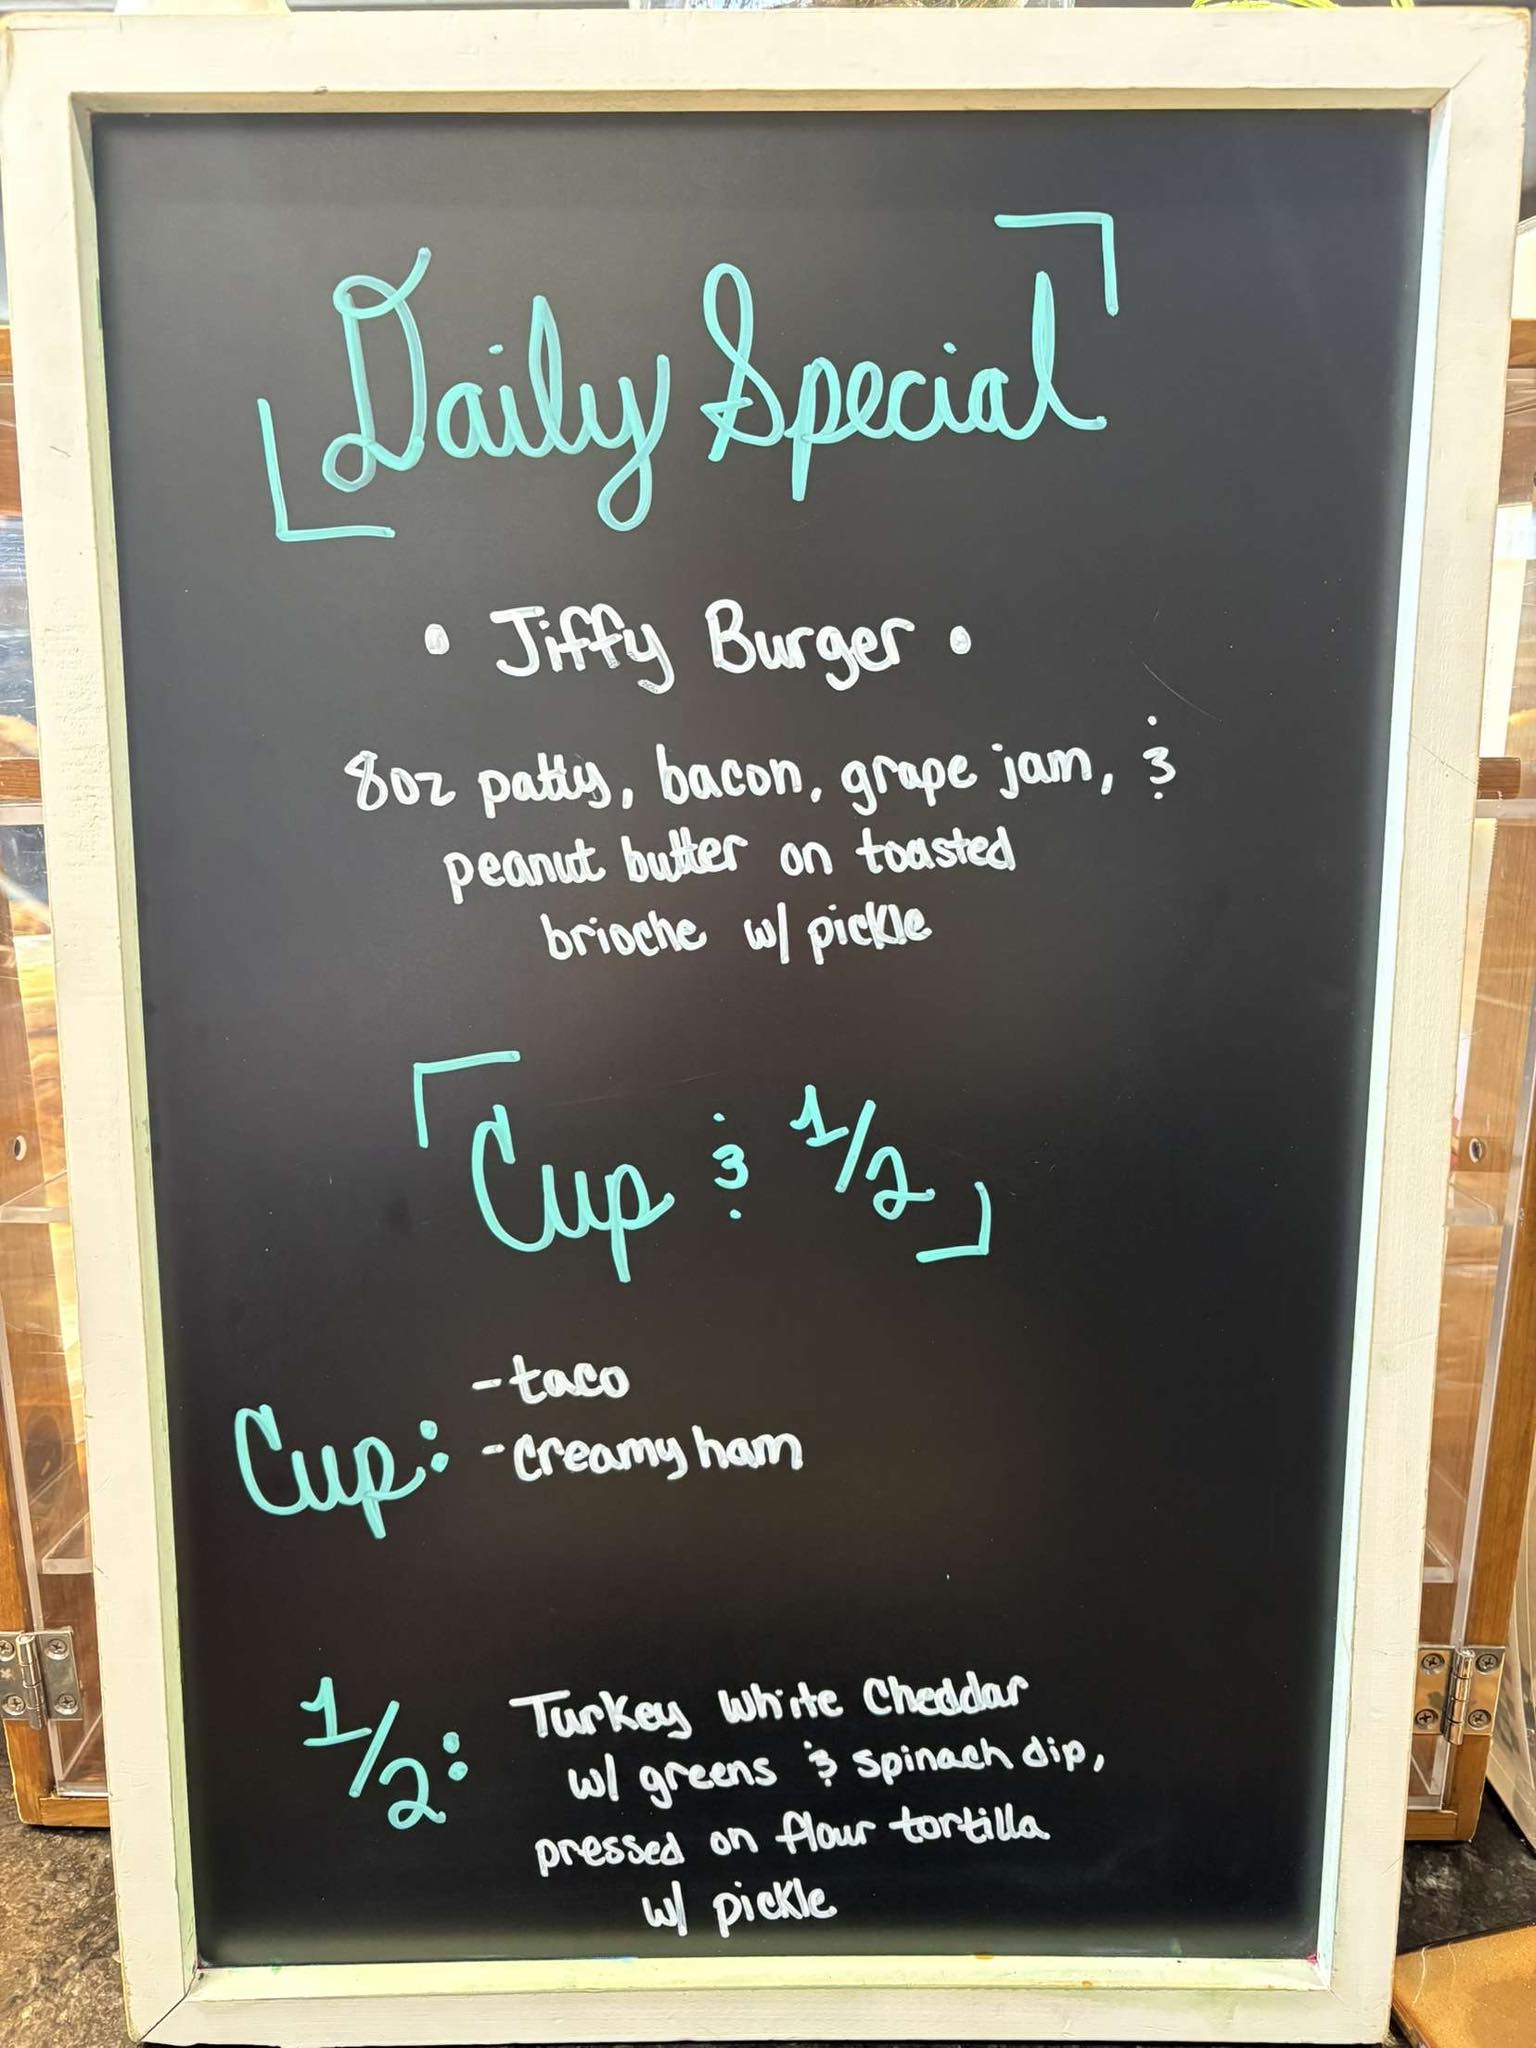 Daily Special
• Jiffy Burger •
8oz patty, bacon, grape jam, &
peanut butter on toasted
brioche w/ pickle
Cup & 1/2
Cup:
- taco
- creamy ham
1/2:
Turkey White Cheddar
w/ greens & spinach dip,
pressed on flour tortilla
w/ pickle